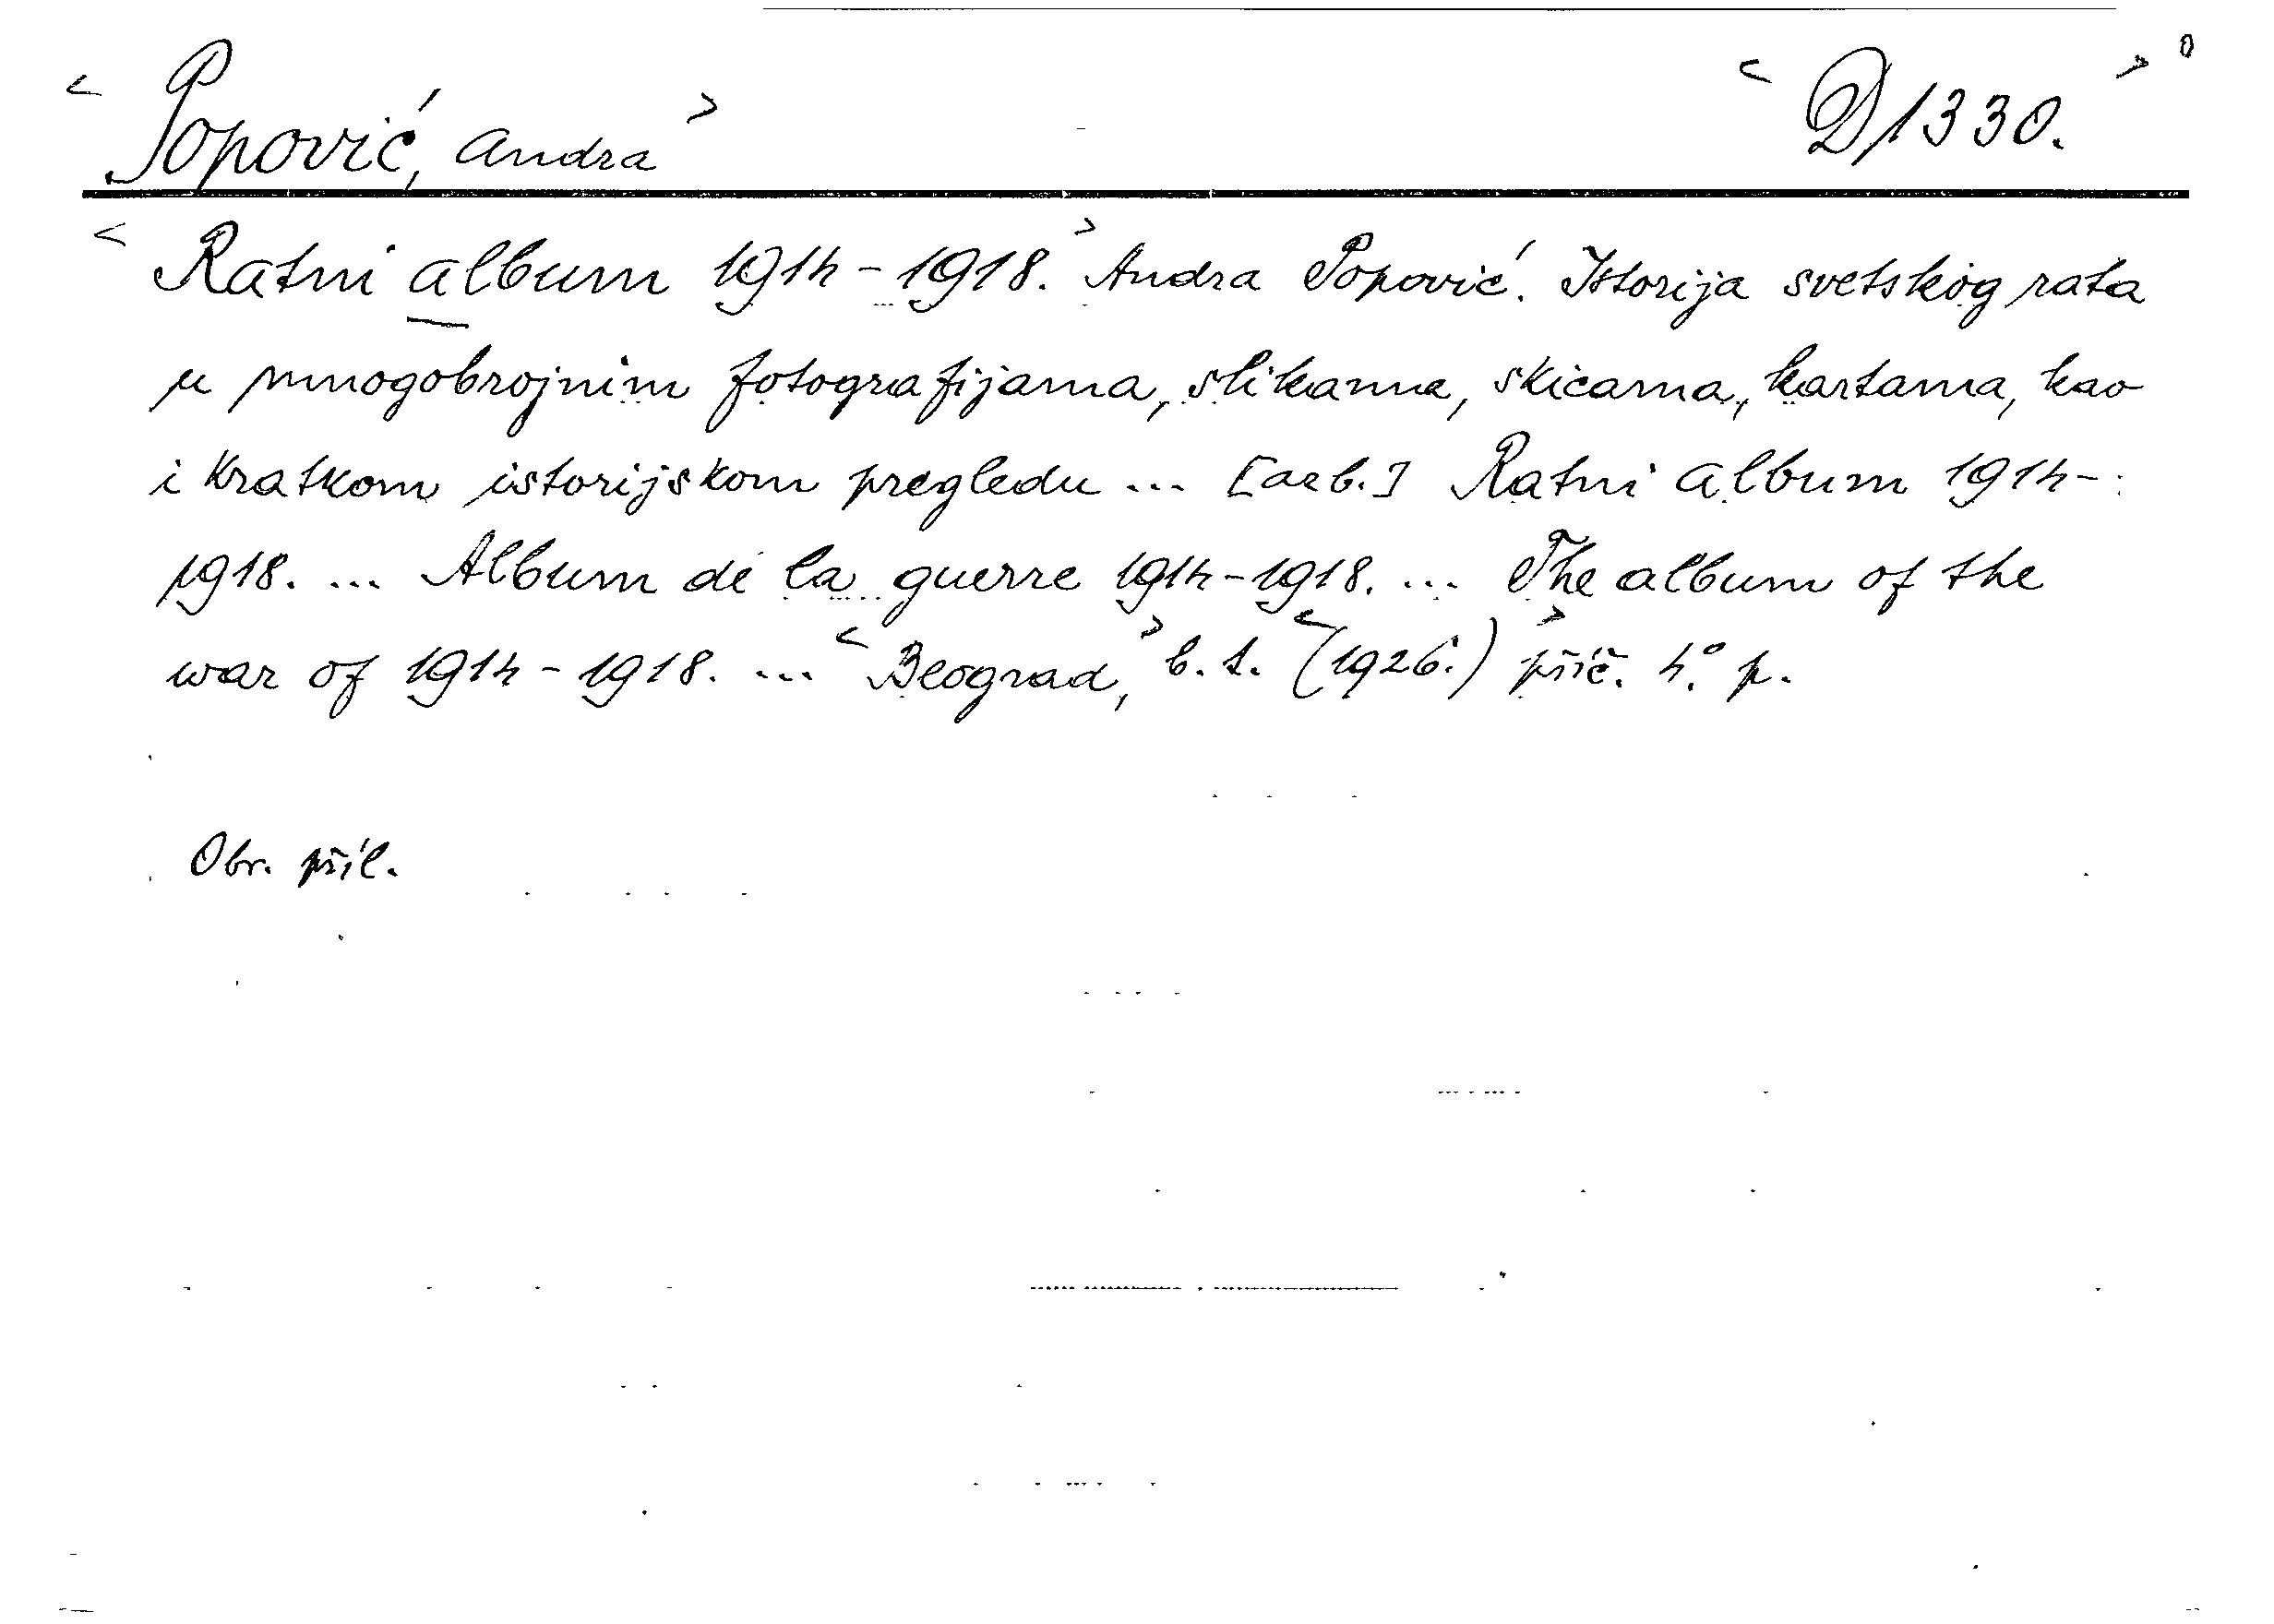 < Popović, Andra > < D 1330. > 0
< Ratni album 1914-1918. > Andra Popović. Istorija svetskog rata
u mnogobrojnim fotografijama, slikama, skicama, kartama, kao
i kratkom istorijskom pregledu ... [aeb.] Ratni album 1914-
1918. ... Album de la guerre 1914-1918. ... The album of the
war of 1914-1918. ... < Beograd, > b. t. < (1926.) > příč. 4.° p.
Obr. příl.